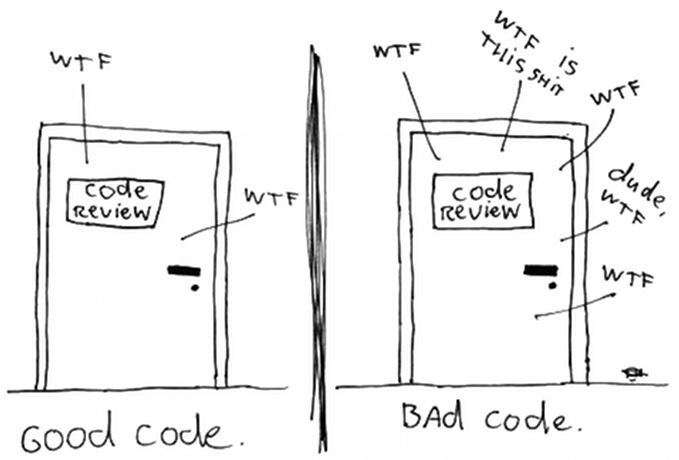 WTF
code
REVIEW
WTF
GOOD code.
WTF
WTF is
THIS SHIT
WTF
code
REVIEW
dude,
WTF
WTF
BAD code.